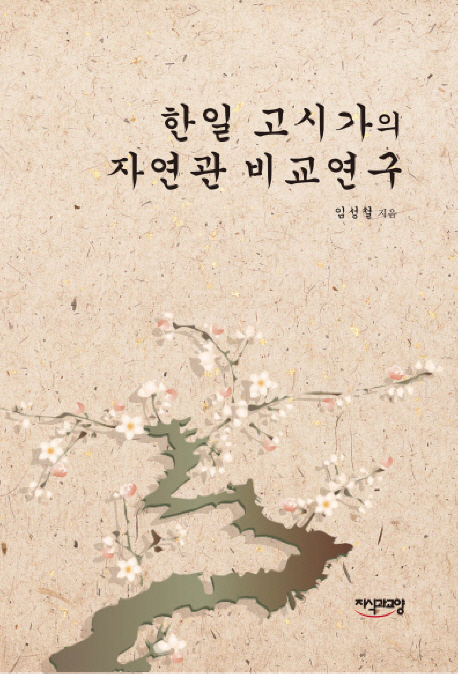 한일 고시가의
자연관 비교연구
임성철 지음
지식과교양